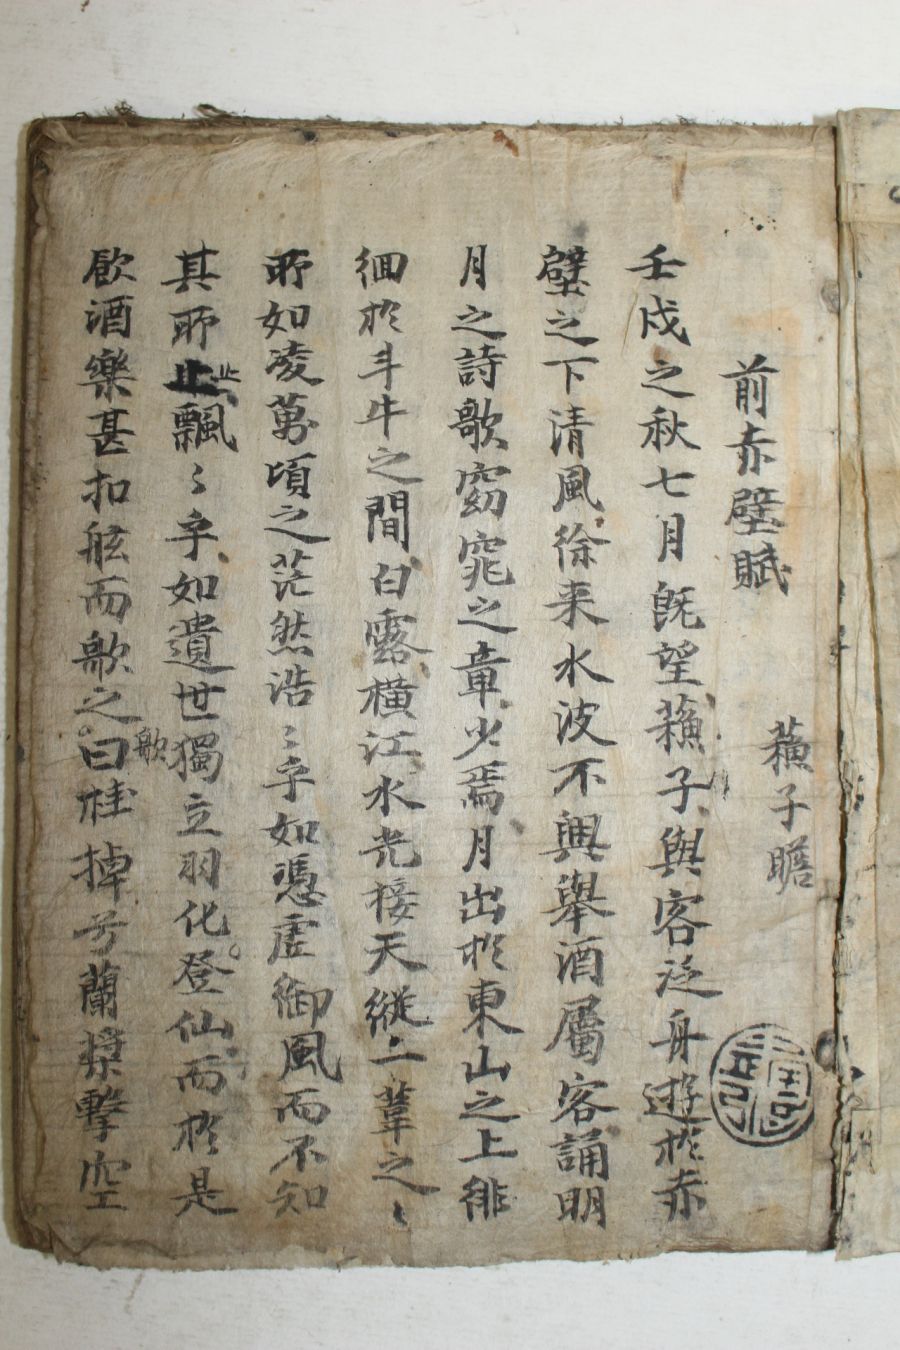 前赤壁賦
蘓子瞻
壬戌之秋七月旣望蘓子與客泛舟遊於赤
壁之下清風徐来水波不興舉酒屬客誦明
月之詩歌窈窕之章少焉月出於東山之上徘
徊於斗牛之間白露橫江水光接天縱一葦之〻
所如凌萬頃之茫然浩〻乎如憑虛御風而不知
其所止止飄〻乎如遺世獨立羽化登仙而於是
飮酒樂甚扣舷而歌之曰桂掉兮蘭槳擊空
歌